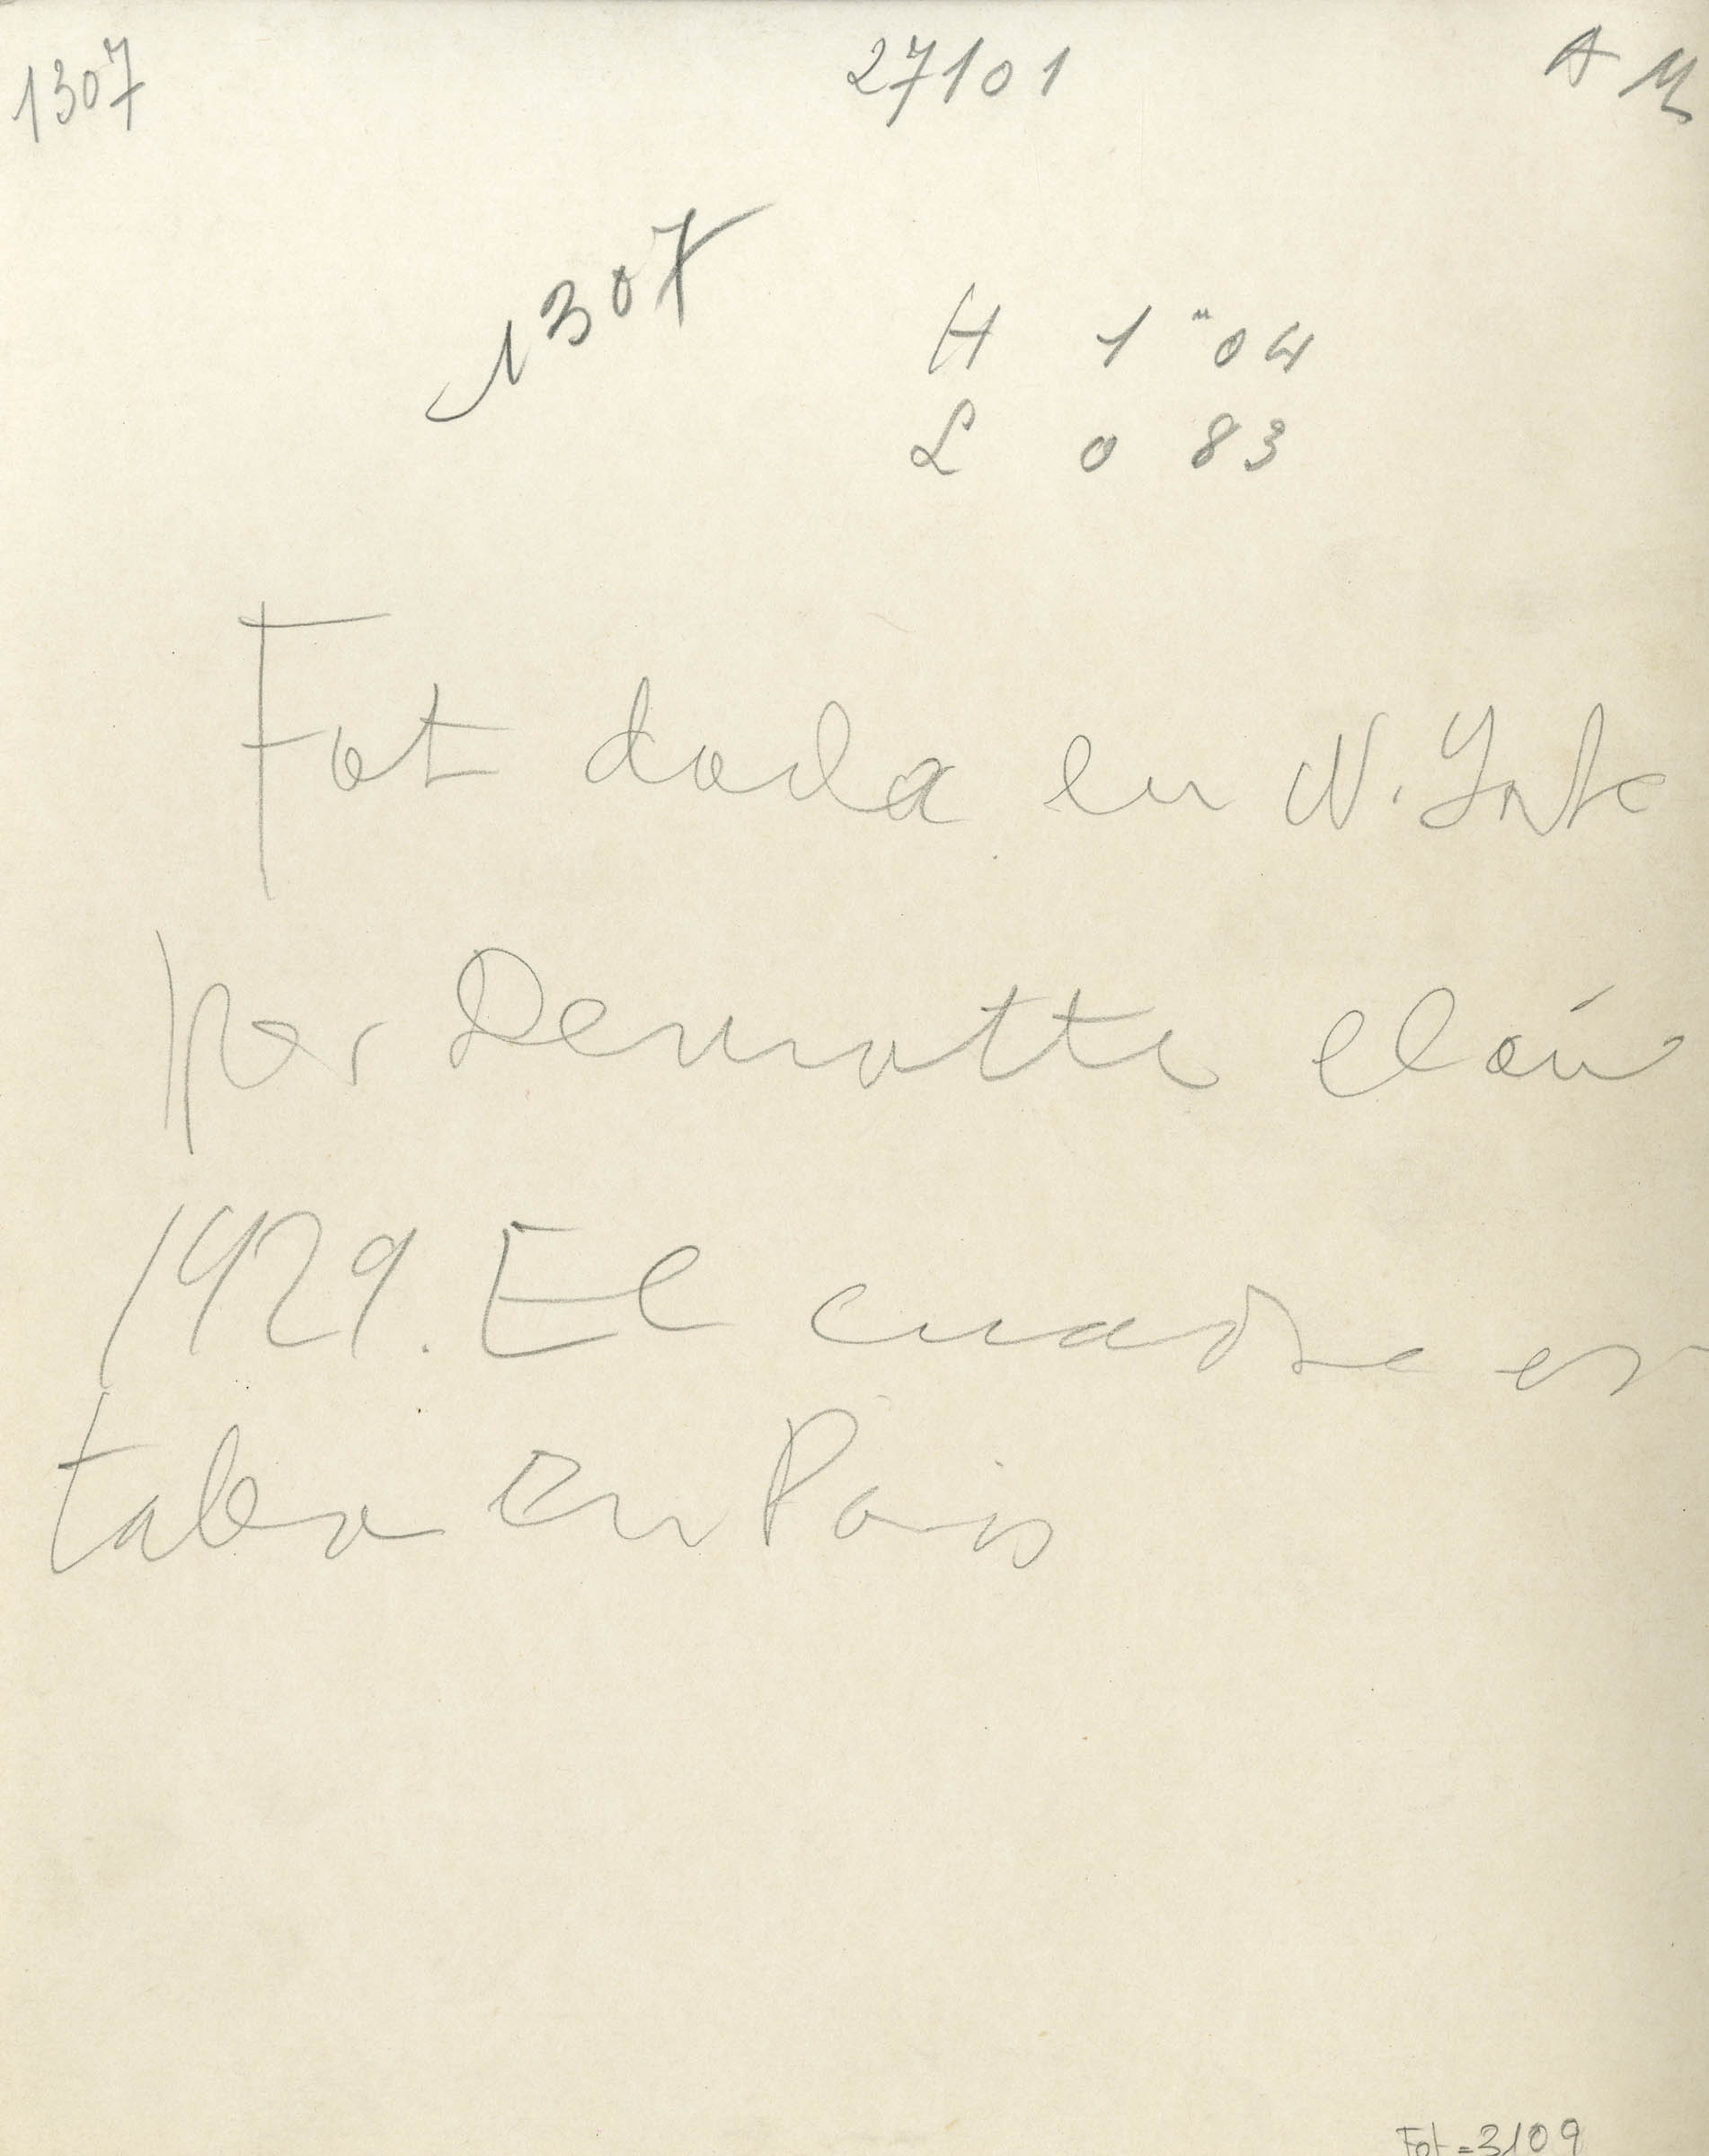 1307 27101 A M
1307
H 1 m 04
L 0 83
Fot dada en N. York
por Demotte el año
1929. El cuadro es-
taba en Paris
Fot-3109